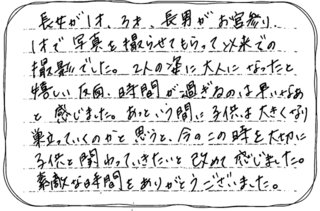 長女が1才、3才、長男がお宮参り、
1才で写真を撮らせてもらって以来での
撮影でした。2人の姿に大人になったと
嬉しい反面、時間が過ぎるのは早いなあ
と感じました。あっという間に子供は大きくなり
巣立っていくのかと思うと、今のこの時を大切に
子供と関わっていきたいと改めて感じました。
素敵な時間をありがとうございました。